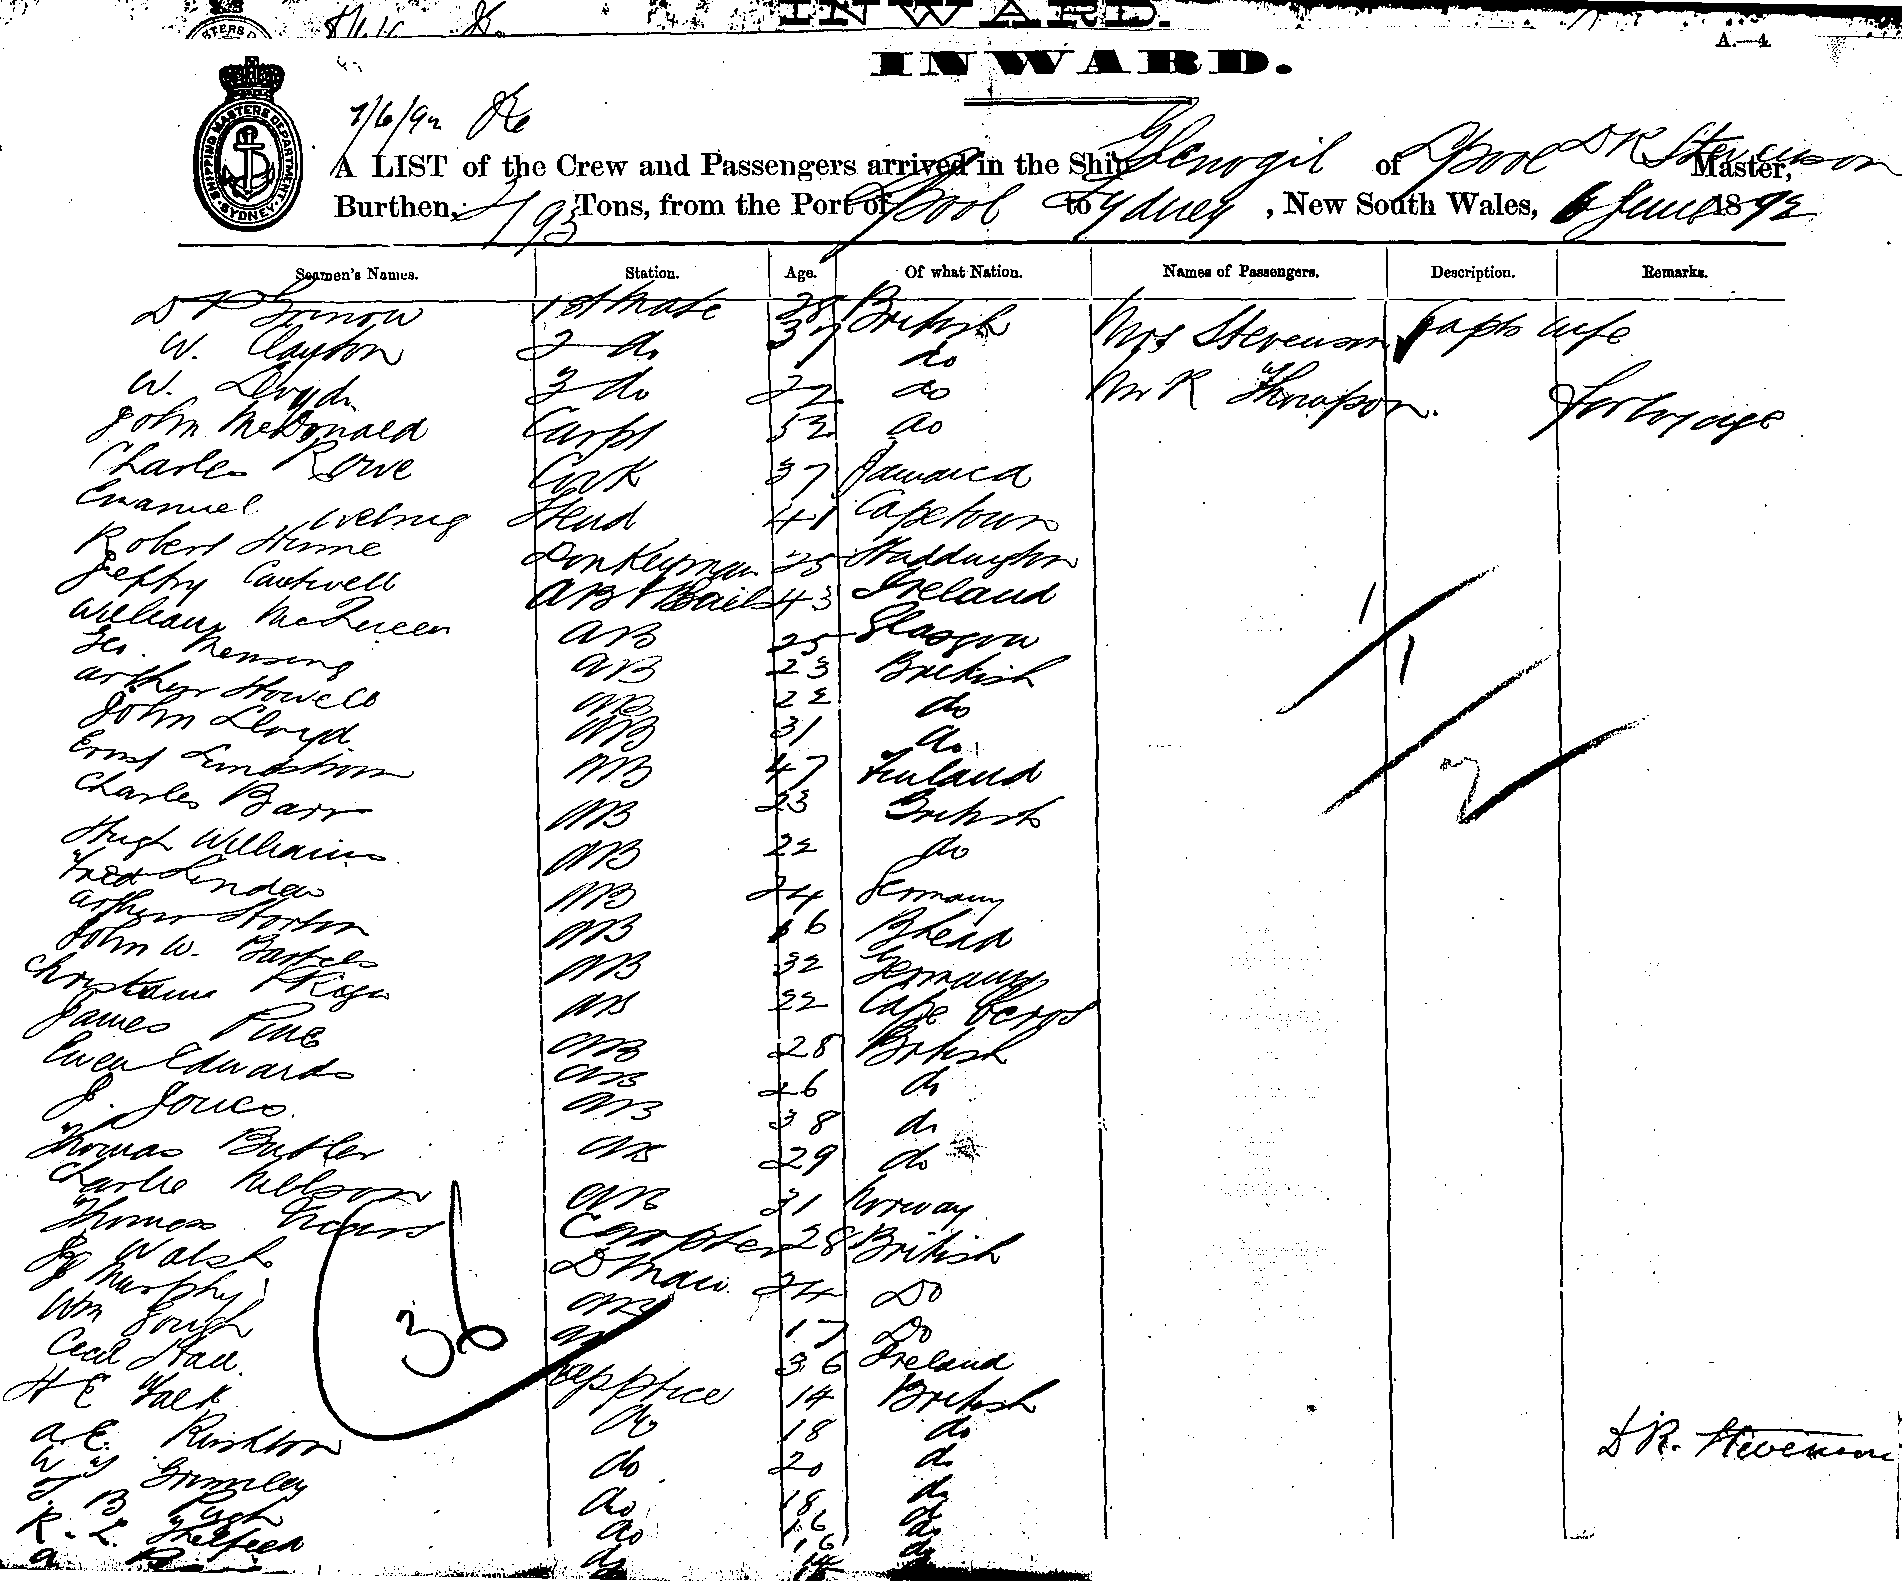 INWARD.
INWARD.
A.—4
SHIPPING MASTERS DEPARTMENT. SYDNEY.
7/6/92
A LIST of the Crew and Passengers arrived in the Ship Glenogil of Lpool D R Stevenson Master,
Burthen, Tons, from the Port of Lpool to Sydney, New South Wales, 6 June 1892
Seamen's Names. Station. Age. Of what Nation. Names of Passengers. Description. Remarks.
1st Mate 28 British Mrs Stevenson Capts wife
W. Clayton 2 do 37 do
W. Lloyd 3 do 22 do Mr R Thompson. for voyage
John McDonald Carpt 52 do
Charles Rowe Cook 37 Jamaica
Emanuel Stend 41 Capetown
Robert Hume Donkeyman 25 Haddington
Jeffry Cantwell AB & Sails 43 Ireland
William McQueen AB 25 Glasgow
Geo. Mensing AB 23 British
Arthur Howell AB 22 do
John Lloyd AB 31 do
Ernst Lindstrom AB 47 Finland
Charles Barr AB 23 British
Hugh Williams AB 22 do
Fred Linden AB 24 Germany
Arthur Horton AB 16 Bhead
John W. Bartels AB 32 Germany
AB 22 Cape Verds
James Pine AB 28 British
Owen Edwards AB 26 do
J. Jones AB 38 do
Thomas Butler AB 29 do
Charlie Neilson AB 31 Norway
Thomas 28 British
Jas Walsh 24 Do
J Murphy AB 17 Do
Wm Gough 36 Ireland
Cecil Hall Apptice 14 British
H E Falk do 18 do
A. E. Rushton do 20 do
W Grimley do 18 do
B Pugh do 16 do
R. L. do 16 do
36
1
1
2
D R. Stevenson